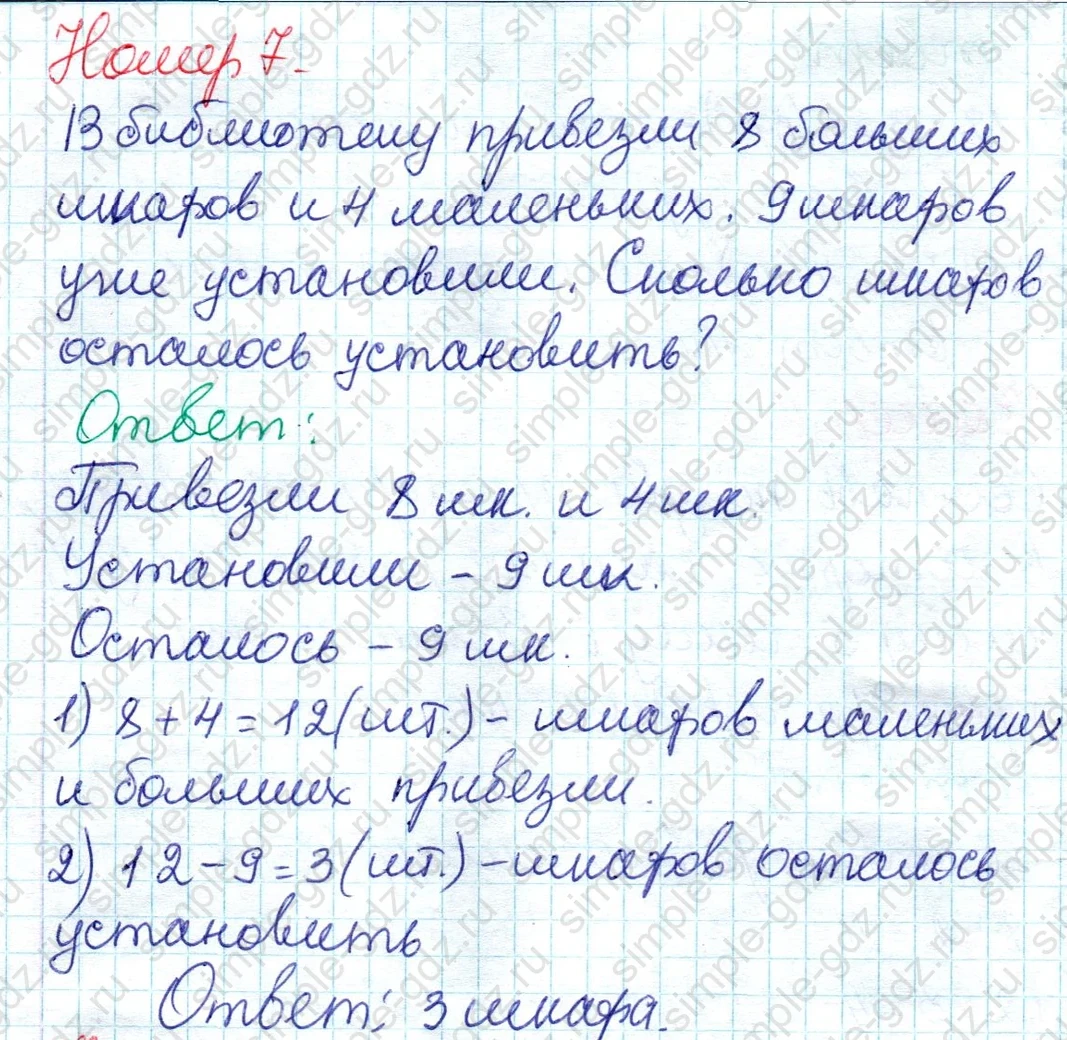 Номер 7.
В библиотеку привезли 8 больших
шкафов и 4 маленьких. 9 шкафов
уже установили. Сколько шкафов
осталось установить?
Ответ:
Привезли 8 шк. и 4 шк.
Установили - 9 шк.
Осталось - 9 шк.
1) 8+4=12(шт.) - шкафов маленьких
и больших привезли.
2) 12-9=3(шт.) - шкафов осталось
установить
Ответ: 3 шкафа.
simple-gdz.ru